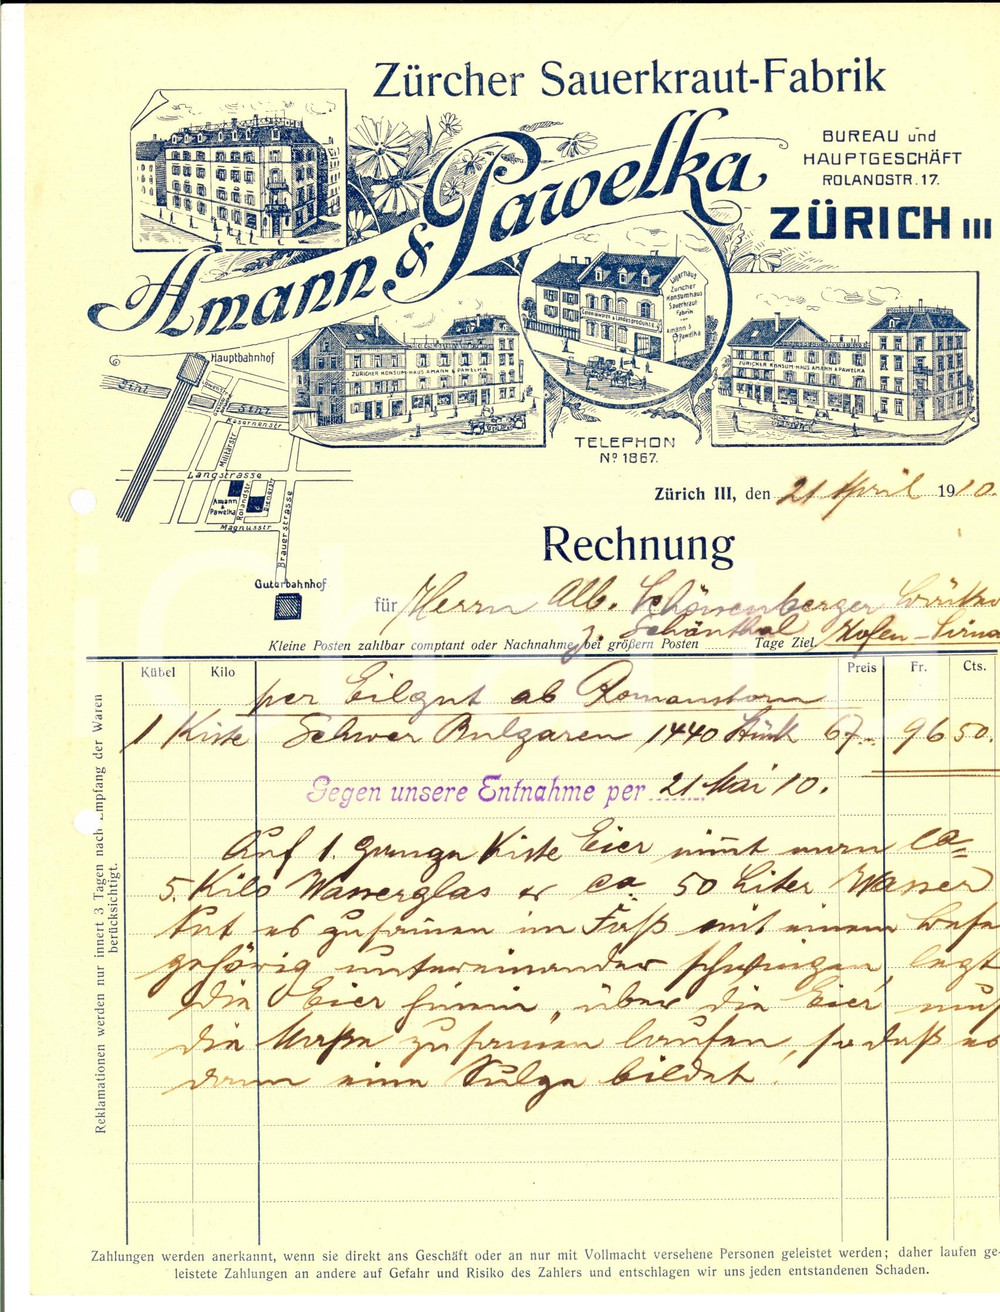 Zürcher Sauerkraut-Fabrik
Amann & Pawelka
BUREAU und
HAUPTGESCHÄFT
ROLANDSTR. 17.
ZÜRICH III
Lagerhaus
Zürcher
Konsumhaus
Sauerkraut
Fabrik
Amann &
Pawelka
ZÜRICHER KONSUM-HAUS AMANN & PAWELKA
ZÜRICHER KONSUM-HAUS AMANN & PAWELKA
TELEPHON
No 1867.
Hauptbahnhof
Sihl
Sihl
Kasernenstr
Militärstr
Langstrasse
Amann
&
Pawelka
Rolandstr
Magnusstr
Brauerstrasse
Güterbahnhof
Zürich III, den 21 April 1910.
Rechnung
für Herrn Alb.
z. Schönthal
Kleine Posten zahlbar comptant oder Nachnahme, bei größern Posten Tage Ziel
Kübel Kilo Preis Fr. Cts.
per Eilgut ab Romanshorn
1 Kiste Schwer Bulgaren 1440 Stück 67.- 96 50.
Gegen unsere Entnahme per 21 Mai 10.
Auf 1. ganze Kiste Eier nimmt man ca
5. Kilo Wasserglas & ca 50 Liter Wasser
tut es zusammen im Faß mit einem
gehörig untereinander schwingen, legt
die Eier hinein, über die Eier muß
die Maße zusammen laufen, so daß es
dann eine Sulze bildet.
Reklamationen werden nur innert 3 Tagen nach Empfang der Waren
berücksichtigt.
Zahlungen werden anerkannt, wenn sie direkt ans Geschäft oder an nur mit Vollmacht versehene Personen geleistet werden; daher laufen ge-
leistete Zahlungen an andere auf Gefahr und Risiko des Zahlers und entschlagen wir uns jeden entstandenen Schaden.